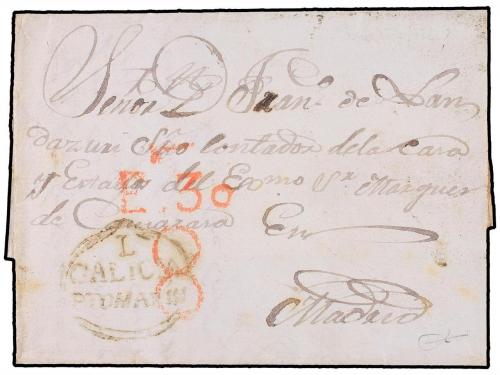 Señor D. Franᶜ. de Lan
dazuri Sʳᵒ Contador de la Casa
y Estados del Exmo Sr. Marques
de
En
Madrid
E. 3º
L
GALICIA
PTOMARIN
8